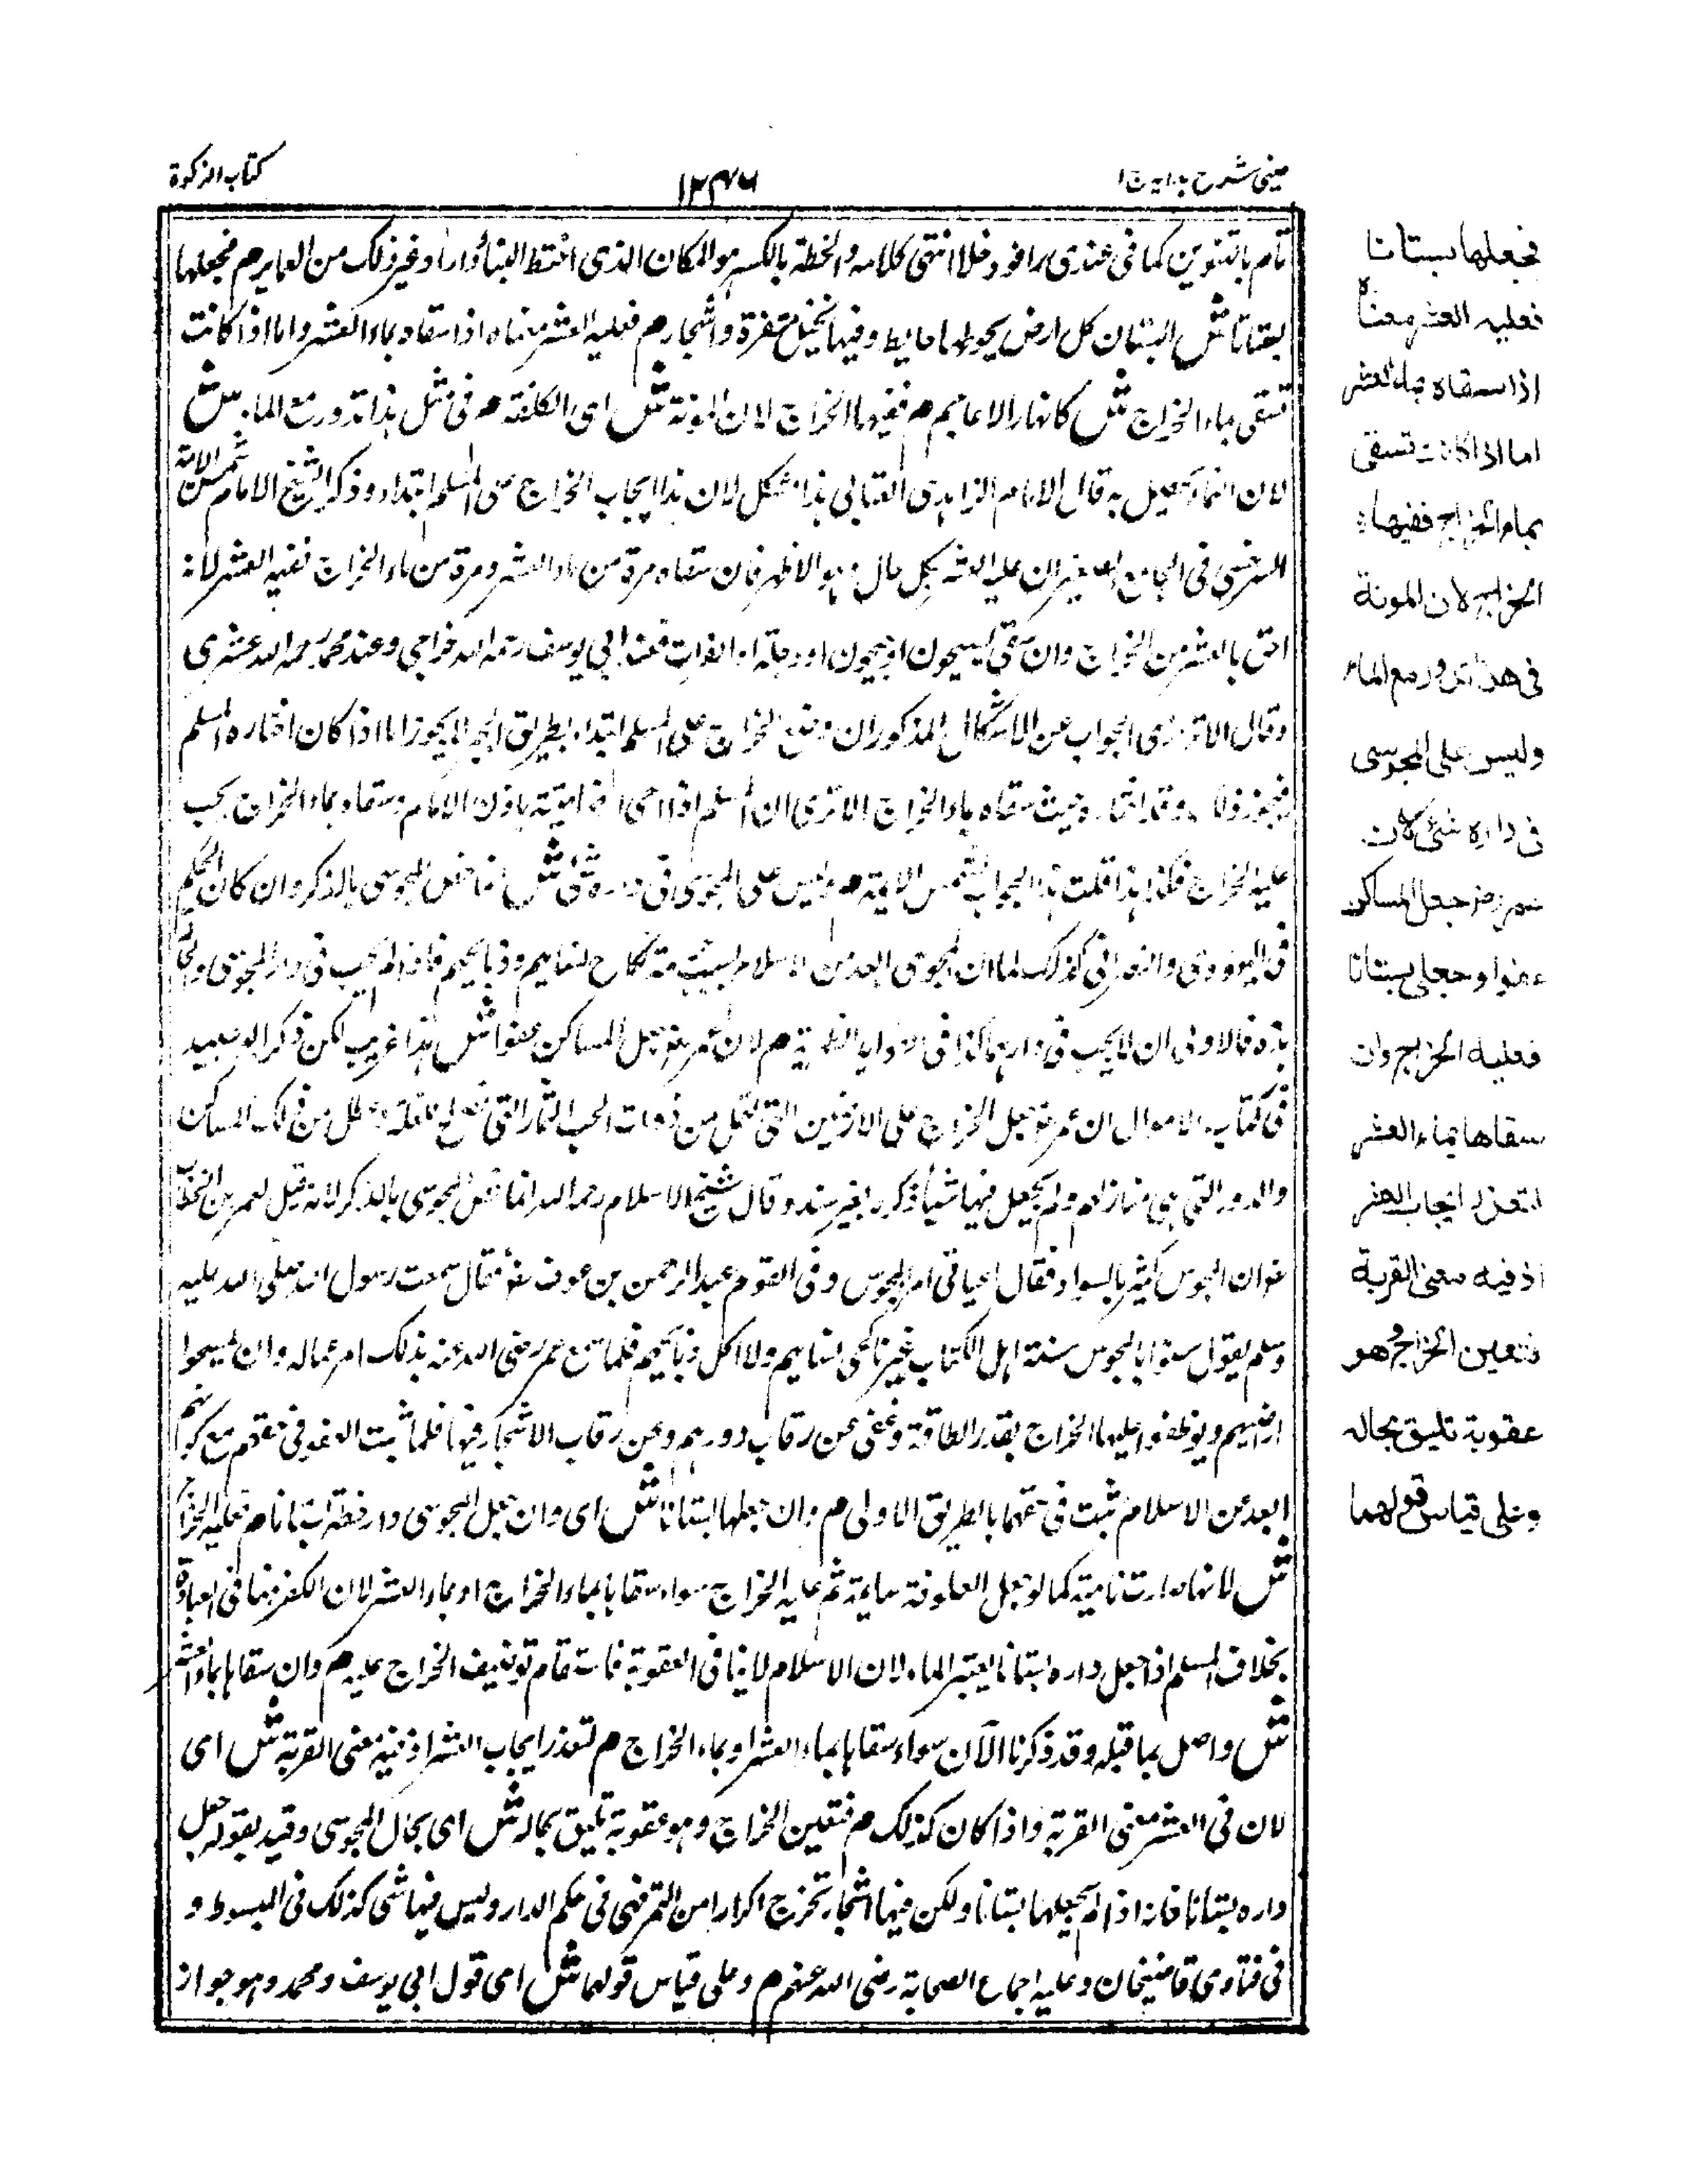 عینی شرح هدایه ج ۱
۱۲۴۶
کتاب الزکوة
تام بالتنوين كما في عندي راقود خلا انتهى كلامه والخطة بالكسر هو المكان الذي اختط لبناء دار او غير ذلك من العماير م فجعلها
بستانا ش البستان كل ارض يحوطها حايط وفيها نخيل متفرقة واشجار م فعليه العشر معناه اذا سقاه بماء العشر واما اذا كانت
تسقى بماء الخراج ش كانهار الاعاجم م ففيها الخراج لان المونة ش اى الكلفة م في مثل هذا تدور مع الماء ش
لان النماء يحصل به قال الامام الزاهدى العتابى هذا مشكل لان هذا ايجاب الخراج على المسلم ابتداء وذكر الشيخ الامام شمس الائمة
السرخسى في الجامع الصغير ان عليه العشر بكل حال وهو الاظهر فان سقاه مرة من ماء العشر ومرة من ماء الخراج ففيه العشر لانه
احق بالعشر من الخراج وان سقى بسيحون او جيحون او دجلة او الفرات فعند ابي يوسف رحمه الله خراجى وعند محمد رحمه الله عشرى
وقال الاترازى الجواب عن الاشكال المذكور ان وضع الخراج على المسلم ابتداء بطريق الجبر لا يجوز اما اذا كان اختاره المسلم
فيجوز ذلك وقد اختاره حيث سقاه بماء الخراج الا ترى ان المسلم اذا احى ارضا ميتة باذن الامام وسقاه بماء الخراج يجب
عليه الخراج فكذا هذا قلت هذا الجواب لشمس الايمة م وليس على المجوسى في داره شئ ش انما خص المجوسى بالذكر وان كان الحكم
في اليهودى والنصرانى كذلك لما ان المجوسى ابعد من الاسلام بسبب حرمة نكاح نسايهم وذبايحهم فاذا لم يجب في دار المجوسى والحال
هذه فالاولى ان لا يجب في دارهما كذا في الفوايد الظهيرية م لان عمر رض جعل المساكن عفوا ش هذا غريب لكن ذكر ابو عبيد
في كتاب الاموال ان عمر رض جعل الخراج على الارضين التي تغل من ذوات الحب والثمار التي تصلح للغلة وعطل من ذلك المساكن
والدور التي هي منازلهم ولم يجعل فيها شيأ ذكره بغير سند وقال شيخ الاسلام رحمه الله انما خص المجوسى بالذكر لانه قيل لعمر بن الخطاب
رض ان المجوس كثير بالسواد فقال اعيانى امر المجوس وفي القوم عبد الرحمن بن عوف رض فقال سمعت رسول الله صلى الله عليه
وسلم يقول سنوا بالمجوس سنة اهل الكتاب غير ناكحى نسايهم ولا اكل ذبايحهم فلما سمع عمر رضى الله عنه بذلك امر عماله وان يمسحوا
اراضيهم ويوظفوا عليها الخراج بقدر الطاقة وعفى عن رقاب دورهم وعن رقاب الاشجار فيها فلما ثبت العفو في حقهم مع كونهم
ابعد عن الاسلام ثبت في حقهما بالطريق الاولى م وان جعلها بستانا ش اى وان جعل المجوسى دار خطة بستانا م فعليه الخراج
ش لانها صارت نامية كما لو جعل العلوفة سايمة ثم عليه الخراج سواء سقاها بماء الخراج او بماء العشر لان الكفر ينافى العبادة
بخلاف المسلم اذا جعل داره بستانا يعتبر الماء لان الاسلام لا ينافى العقوبة فاستقام توظيف الخراج عليه م وان سقاها بماء العشر
ش واصل بما قبله وقد ذكرنا الآن سواء سقاها بماء العشر او بماء الخراج م لتعذر ايجاب العشر اذ فيه معنى القربة ش اى
لان في العشر معنى القربة واذا كان كذلك م فتعين الخراج وهو عقوبة تليق بحاله ش اى بحال المجوسى وقيد بقوله جعل
داره بستانا فانه اذا لم يجعلها بستانا ولكن فيها اشجار تخرج اكرارا من التمر فهى في حكم الدار وليس فيها شى كذلك في المبسوط و
في فتاوى قاضيخان وعليه اجماع الصحابة رضى الله عنهم م وعلى قياس قولهما ش اى قول ابى يوسف ومحمد وهو جواز
فجعلها بستانا
فعليه العشر معناه
اذا سقاه بماء العشر
اما اذا كانت تسقى
بماء الخراج ففيها
الخراج لان المونة
في هذا تدور مع الماء
وليس على المجوسى
في داره شئ لان
عمر رض جعل المساكن
عفوا وجعلها بستانا
فعليه الخراج وان
سقاها بماء العشر
لتعذر ايجاب العشر
اذ فيه معنى القربة
فتعين الخراج وهو
عقوبة تليق بحاله
وعلى قياس قولهما